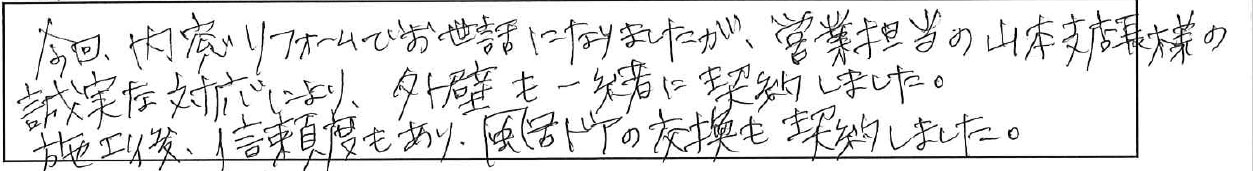 今回、内窓リフォームでお世話になりましたが、営業担当の山本支店長様の
誠実な対応により、外壁も一緒に契約しました。
施工後、信頼度もあり、風呂ドアの交換も契約しました。